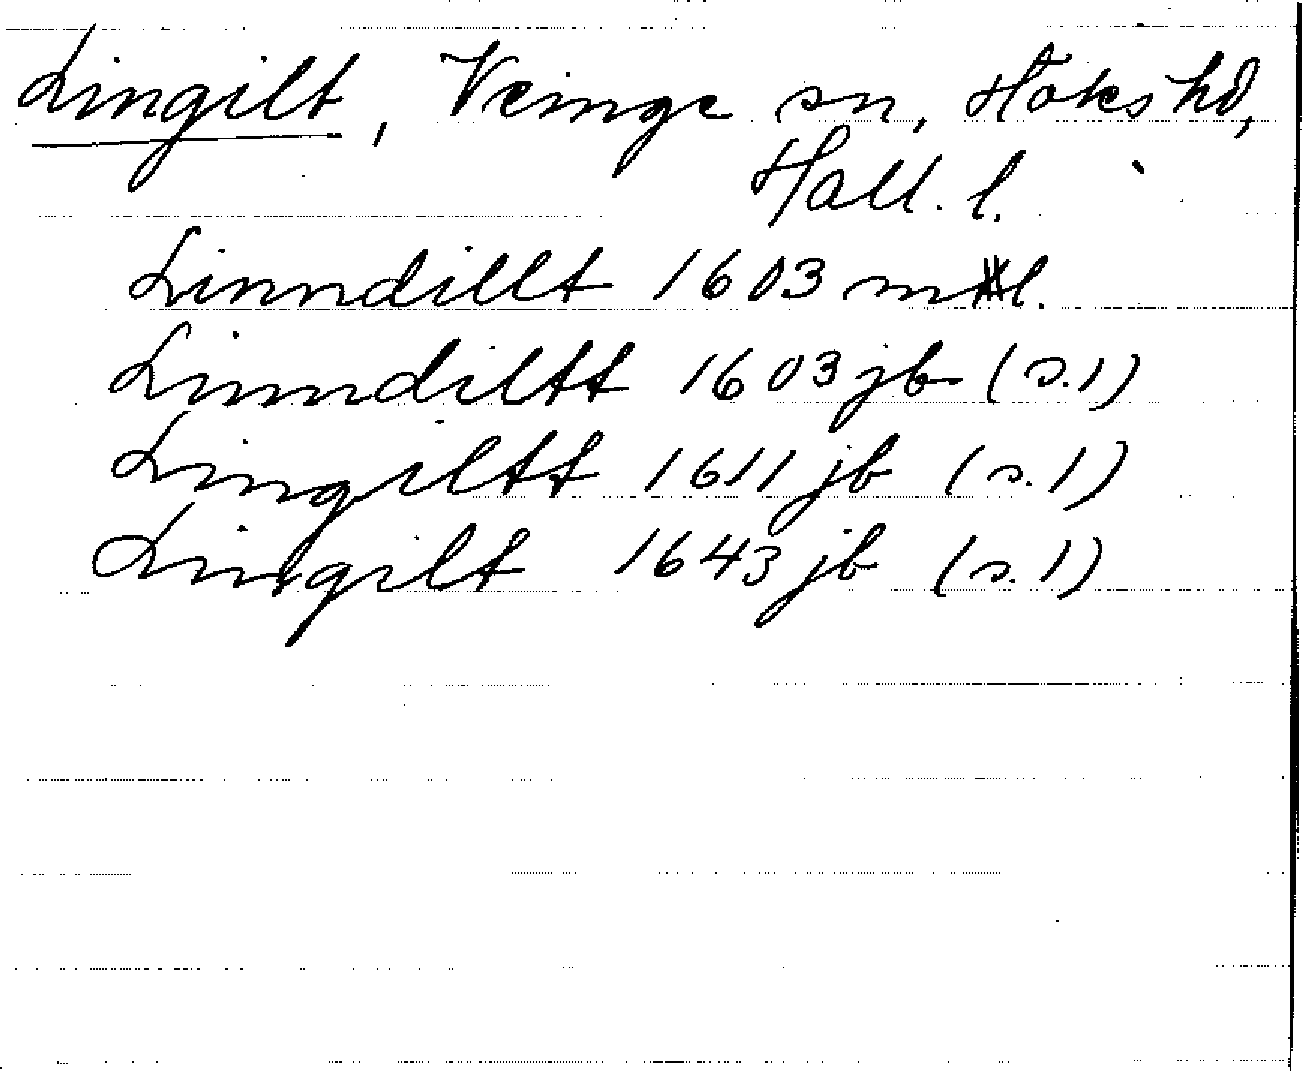 Lingilt, Veinge sn, Höks hd,
Hall. l.
Linndillt 1603 mtl.
Linndiltt 1603 jb (s. 1)
Lingiltt 1611 jb (s. 1)
Lingilt 1643 jb (s. 1)